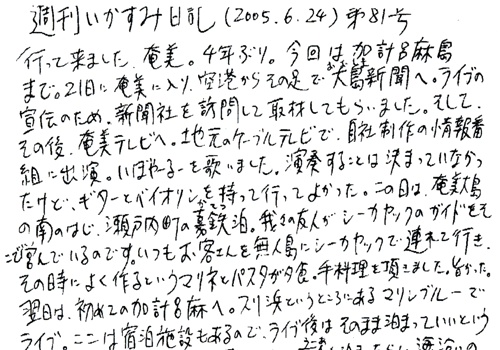 週刊いかすみ日記 (2005.6.24) 第81号
行って来ました、奄美。4年ぶり。今回は加計呂麻島
まで。21日に奄美に入り、空港からその足で大島新聞へ。ライブの
宣伝のため、新聞社を訪問して取材してもらいました。そして、
その後、奄美テレビへ。地元のケーブルテレビで、自社制作の情報番
組に出演。いばやーるーを歌いました。演奏することは決まっていなかっ
たけど、ギターとバイオリンを持って行ってよかった。この日は、奄美大島
の南のはじ、瀬戸内町の嘉鉄泊。我々の友人がシーカヤックのガイドをそ
こで営んでいるのです。いつもお客さんを無人島にシーカヤックで連れて行き、
その時によく作るというマリネとパスタが夕食。手料理を頂きました。旨かった。
翌日は、初めての加計呂麻へ。スリ浜というところにあるマリンブルーで
ライブ。ここは宿泊施設もあるので、ライブ後はそのまま泊まっていいという